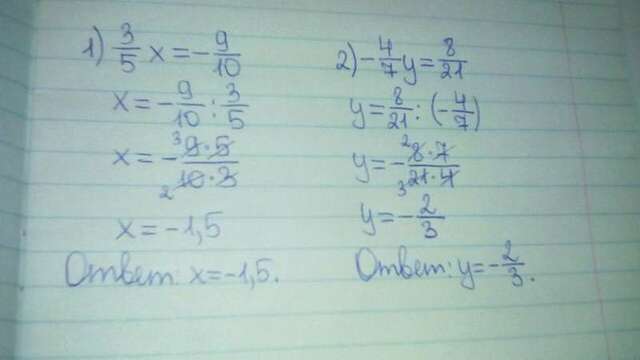 1) 3/5 x = - 9/10
x = - 9/10 : 3/5
x = - 9·5/10·3 3 2
x = -1,5
Ответ: x = -1,5.
2) - 4/7 y = 8/21
y = 8/21 : (- 4/7)
y = - 8·7/21·4 2 3
y = - 2/3
Ответ: y = - 2/3.